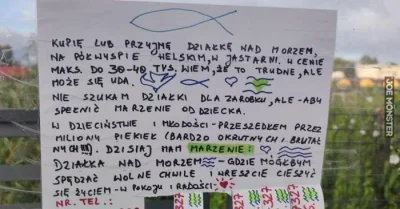 KUPIĘ LUB PRZYJMĘ DZIAŁKĘ NAD MORZEM,
NA PÓŁWYSPIE HELSKIM, W JASTARNI. W CENIE
MAKS. DO 30-40 TYS. WIEM, ŻE TO TRUDNE, ALE
MOŻE SIĘ UDA.
NIE SZUKAM DZIAŁKI DLA ZAROBKU, ALE - ABY
SPEŁNIĆ MARZENIE OD DZIECKA.
W DZIECIŃSTWIE I MŁODOŚCI - PRZESZEDŁEM PRZEZ
MILIONY PIEKIEŁ (BARDZO OKRUTNYCH I BRUTAL
NYCH !!!). DZISIAJ MAM MARZENIE:
DZIAŁKA NAD MORZEM - GDZIE MÓGŁBYM
SPĘDZAĆ WOLNE CHWILE I WRESZCIE CIESZYĆ
SIĘ ŻYCIEM - W POKOJU I RADOŚCI.
NR. TEL.:
327
327
327
JOE MONSTER